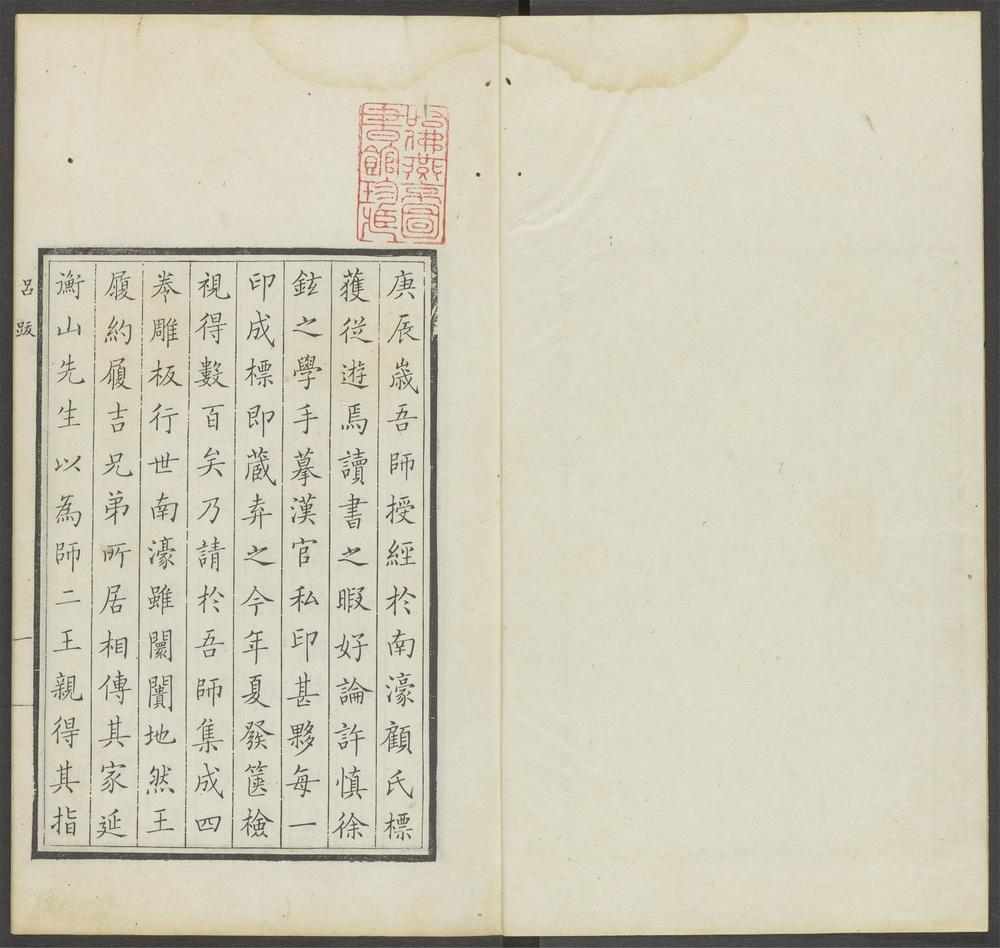 哈佛燕京圖
書館珍藏
庚辰歲吾師授經於南濠顧氏標
獲從遊焉讀書之暇好論許慎徐
鉉之學手摹漢官私印甚夥每一
印成標即蔵弆之今年夏發篋檢
視得數百矣乃請於吾師集成四
卷雕板行世南濠雖闤闠地然王
履約履吉兄弟所居相傳其家延
衡山先生以為師二王親得其指
呂跋
一